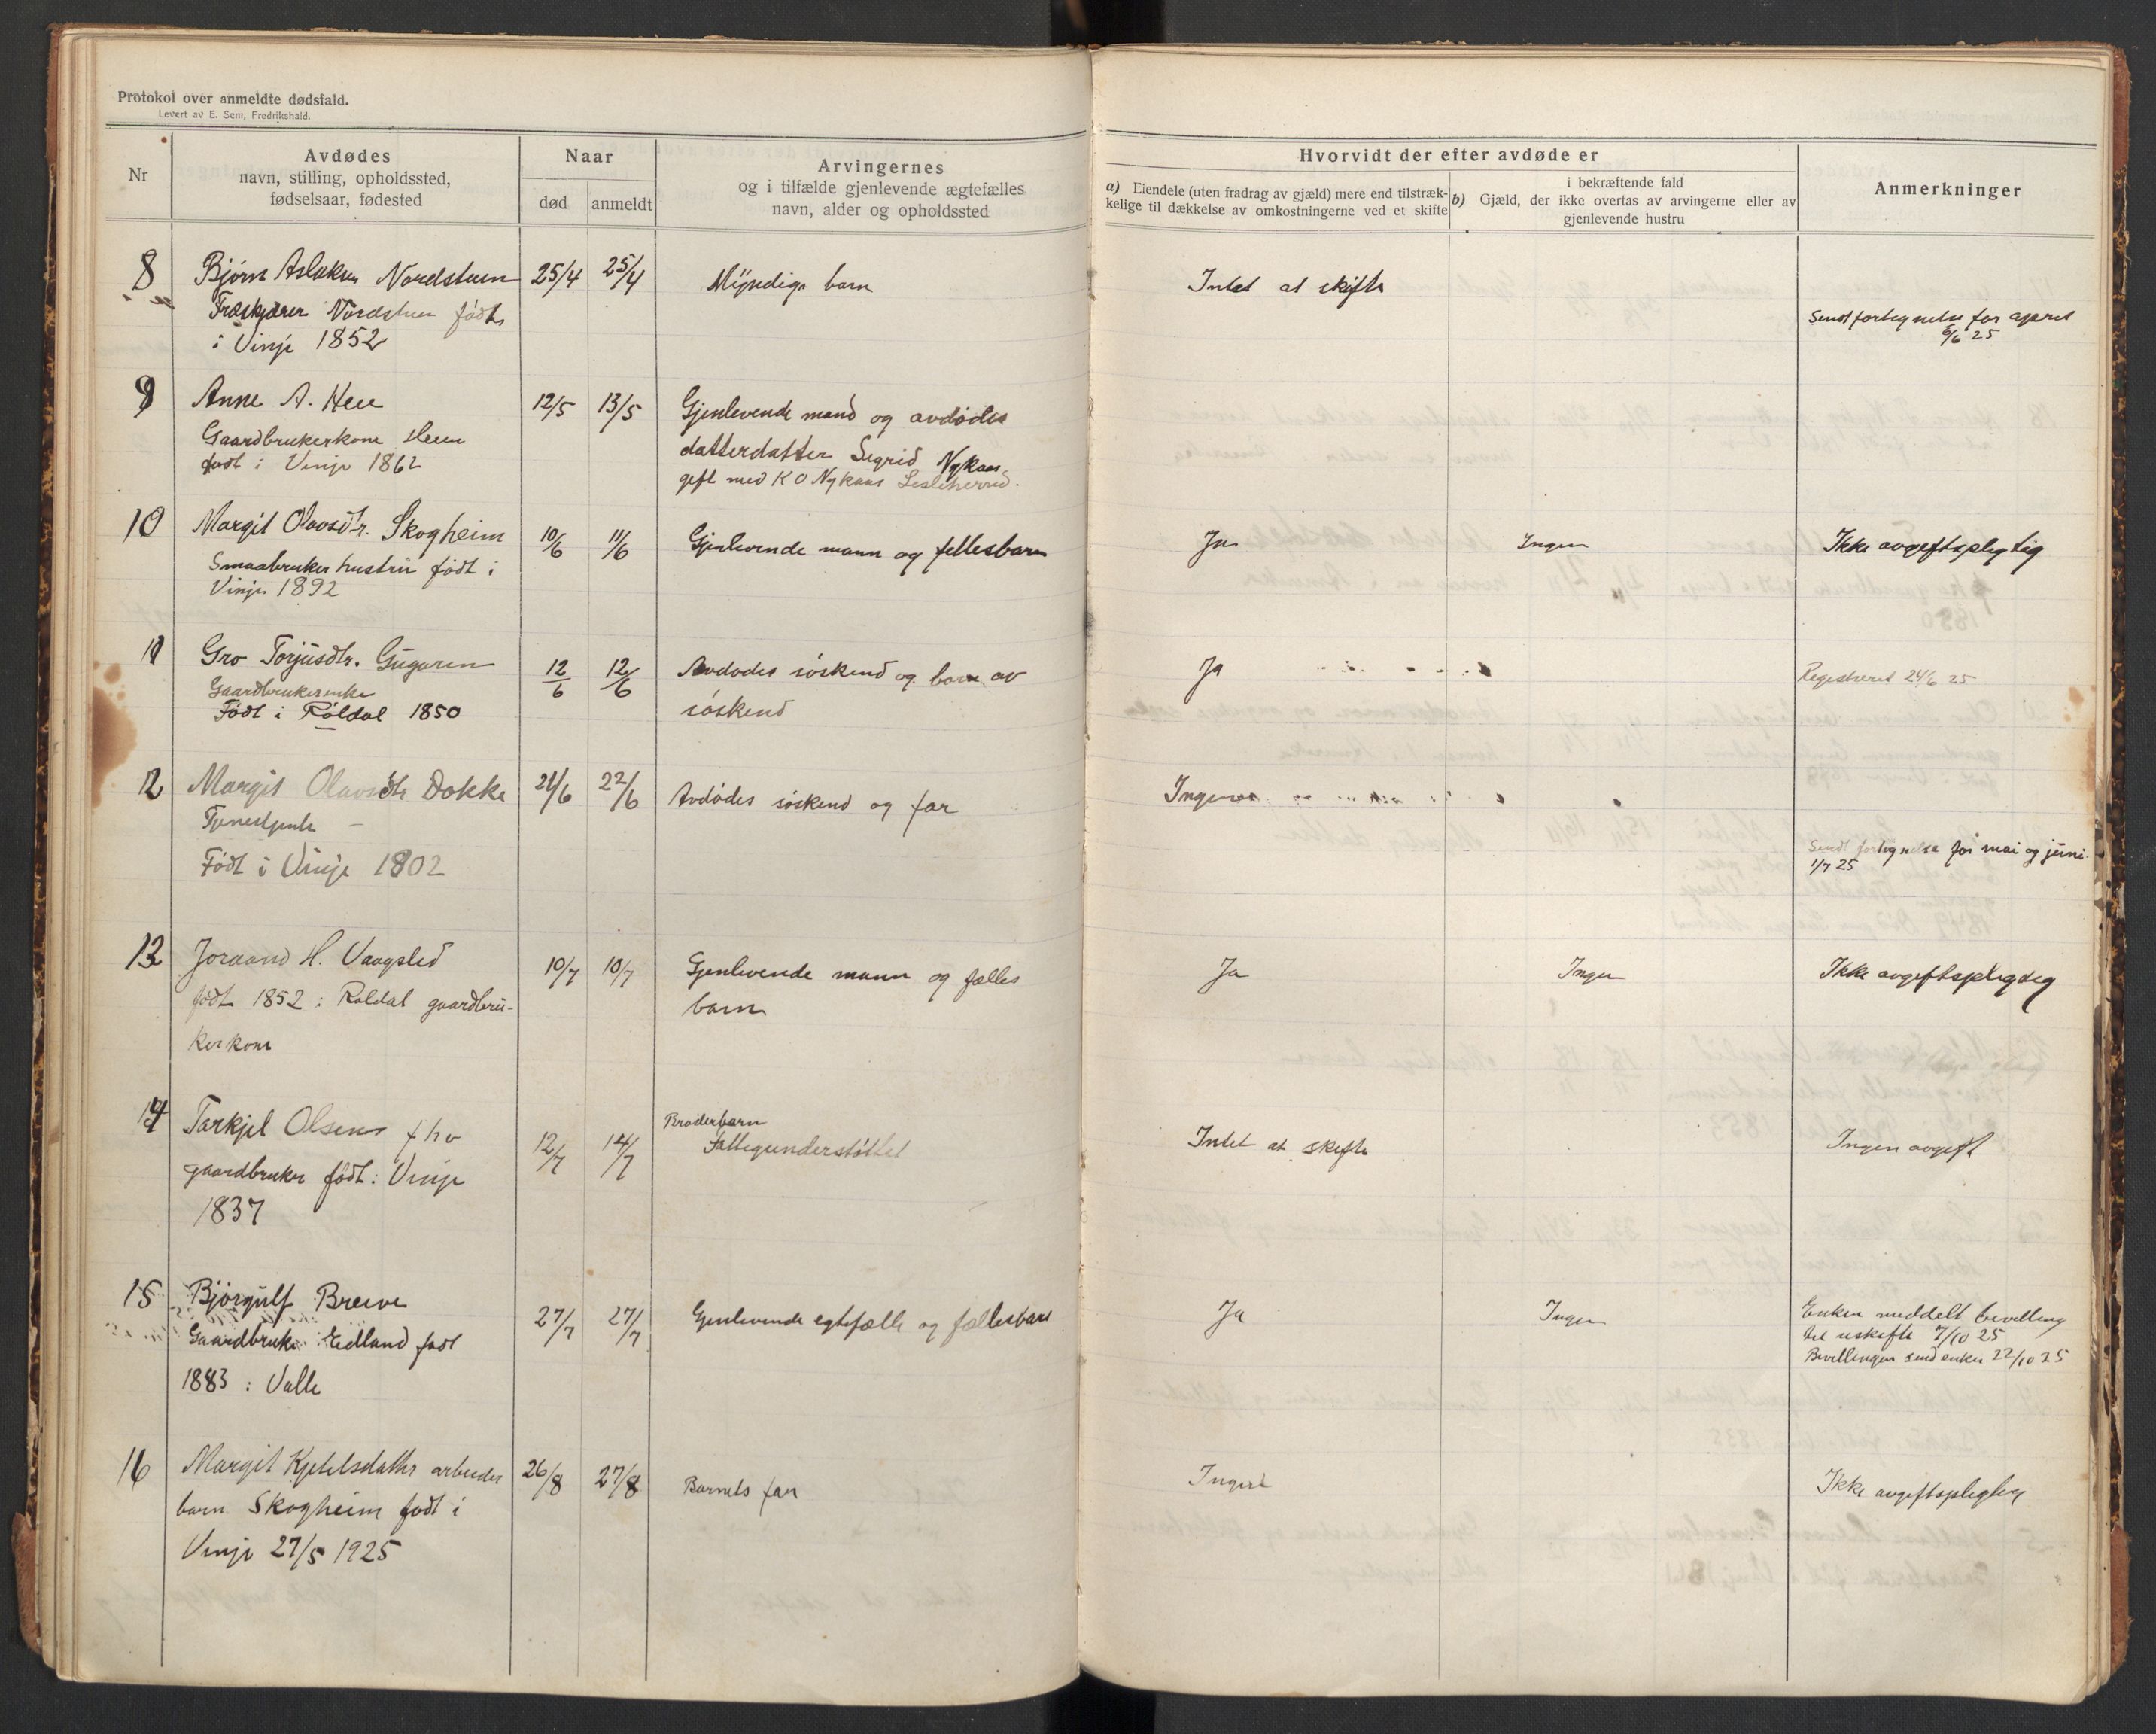 Protokol over anmeldte dødsfald.
Levert av E. Sem, Fredrikshald.
Nr
Avdødes
navn, stilling, opholdssted,
fødselsaar, fødested
Naar
død
anmeldt
Arvingernes
og i tilfælde gjenlevende ægtefælles
navn, alder og opholdssted
Hvorvidt der efter avdøde er
a) Eiendele (uten fradrag av gjæld) mere end tilstræk-
kelige til dækkelse av omkostningerne ved et skifte
i bekræftende fald
b) Gjæld, der ikke overtas av arvingerne eller av
gjenlevende hustru
Anmerkninger
8 Bjørn Aslaksen Nordstuen 25/4 25/4 Myndige barn Intet at skifte
Træskjærer Nordstuen født
i Vinje 1852
Sendt fortegnelse for april
6/6 25
9 Anne A. 12/5 13/5 Gjenlevende mand og avdødes
Gaardbrukerkone
født i Vinje 1862
datterdatter Sigrid Nykaas
gift med K O Nykaas
10 Margit Olavsdtr. Skogheim 10/6 11/6 Gjenlevende mann og fellesbarn Ja Ingen Ikke avgeftspligtig
Smaabruker hustru født i
Vinje 1892
11 Gro Torjusdtr. Gugaren 12/6 12/6 Avdødes søskend og barn av Ja Registreret 24/6 25
Gaardbrukerenke
Født i Røldal 1850
søskend
12 Margit Olavsdtr Dokka 21/6 22/6 Avdødes søskend og far Ingen
Tjenestjente
Født i Vinje 1802
Sendt fortegnelse for mai og juni
1/7 25
13 Joraand H. Vaagsled 10/7 10/7 Gjenlevende mann og fælles Ja Ingen Ikke avgeftspligtig
født 1852 i Røldal gaardbru-
kerkone
barn
14 Tarkjel Olsen fhv 12/7 14/7 Broderbarn
Fattigunderstøttet Intet at skifte Ingen avgift
gaardbruker født i Vinje
1837
15 Bjørgulf Breive 27/7 27/7 Gjenlevende egtefælle og fællesbarn Ja Ingen
Gaardbruker Edland født
1883 i Valle
Enken meddelt bevilling
til uskifte 7/10 25
Bevillingen send enken 22/10 25
16 Margit Kjetilsdatter arbeider 26/8 27/8 Barnets far Ingen Ikke avgeftspligtig
barn Skogheim født i
Vinje 27/5 1925